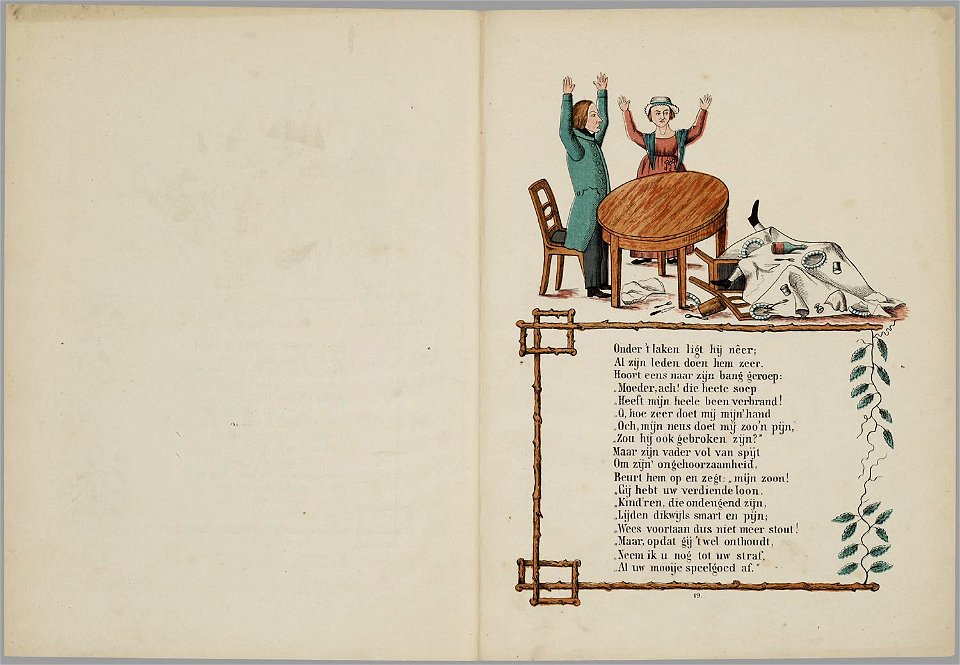 Onder 't laken ligt hij nêer;
Al zijn leden doen hem zeer.
Hoort eens naar zijn bang geroep:
„Moeder, ach! die heete soep
„Heeft mijn heele been verbrand!
„O, hoe zeer doet mij mijn' hand
„Och, mijn neus doet mij zoo'n pijn,
„Zou hij ook gebroken zijn?"
Maar zijn vader vol van spijt
Om zijn' ongehoorzaamheid,
Beurt hem op en zegt: „mijn zoon!
„Gij hebt uw verdiende loon.
„Kind'ren, die ondeugend zijn,
„Lijden dikwijls smart en pijn;
„Wees voortaan dus niet meer stout!
„Maar, opdat gij 't wel onthoudt,
„Neem ik u nog tot uw straf,
„Al uw mooije speelgoed af."
19.